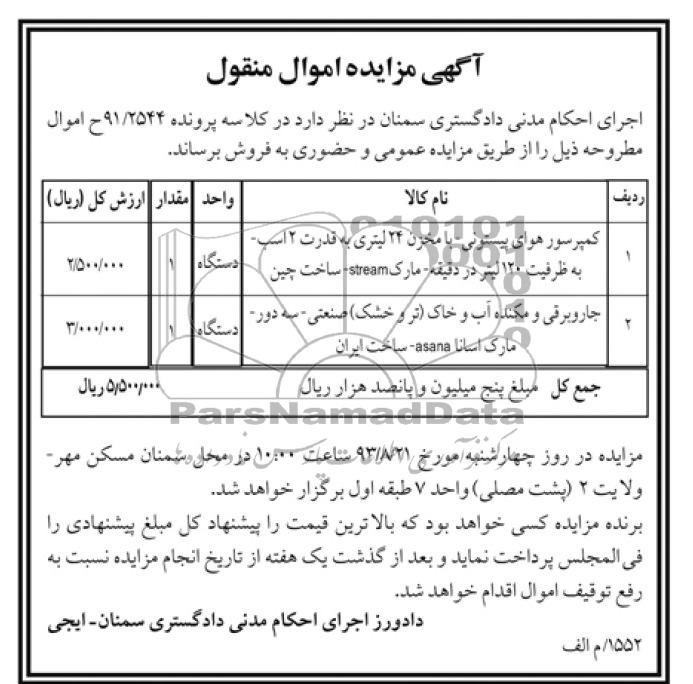 آگهی مزایده اموال منقول
اجرای احکام مدنی دادگستری سمنان در نظر دارد در کلاسه پرونده ۹۱/۲۵۴۴ح اموال
مطروحه ذیل را از طریق مزایده عمومی و حضوری به فروش برساند.
ردیف نام کالا واحد مقدار ارزش کل (ریال)
۱ کمپرسور هوای پیستونی- با مخزن ۲۴ لیتری به قدرت ۲ اسب-
به ظرفیت ۱۲۰ لیتر در دقیقه- مارک stream- ساخت چین دستگاه ۱ ۲/۵۰۰/۰۰۰
۲ جاروبرقی و مکنده آب و خاک (تر و خشک) صنعتی- سه دور-
مارک آسانا asana- ساخت ایران دستگاه ۱ ۳/۰۰۰/۰۰۰
جمع کل مبلغ پنج میلیون و پانصد هزار ریال ۵/۵۰۰/۰۰۰ ریال
ParsNamadData
مزایده در روز چهارشنبه مورخ ۹۳/۸/۲۱ ساعت ۱۰:۰۰ در محل سمنان مسکن مهر-
ولایت ۲ (پشت مصلی) واحد ۷ طبقه اول برگزار خواهد شد.
برنده مزایده کسی خواهد بود که بالاترین قیمت را پیشنهاد کل مبلغ پیشنهادی را
فی‌المجلس پرداخت نماید و بعد از گذشت یک هفته از تاریخ انجام مزایده نسبت به
رفع توقیف اموال اقدام خواهد شد.
دادورز اجرای احکام مدنی دادگستری سمنان- ایجی
۱۵۵۲/م الف